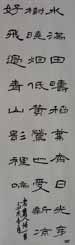 水滿田疇稻葉齊日光穿
樹曉烟低黃鶯也愛新涼
好飛過青山影裡啼